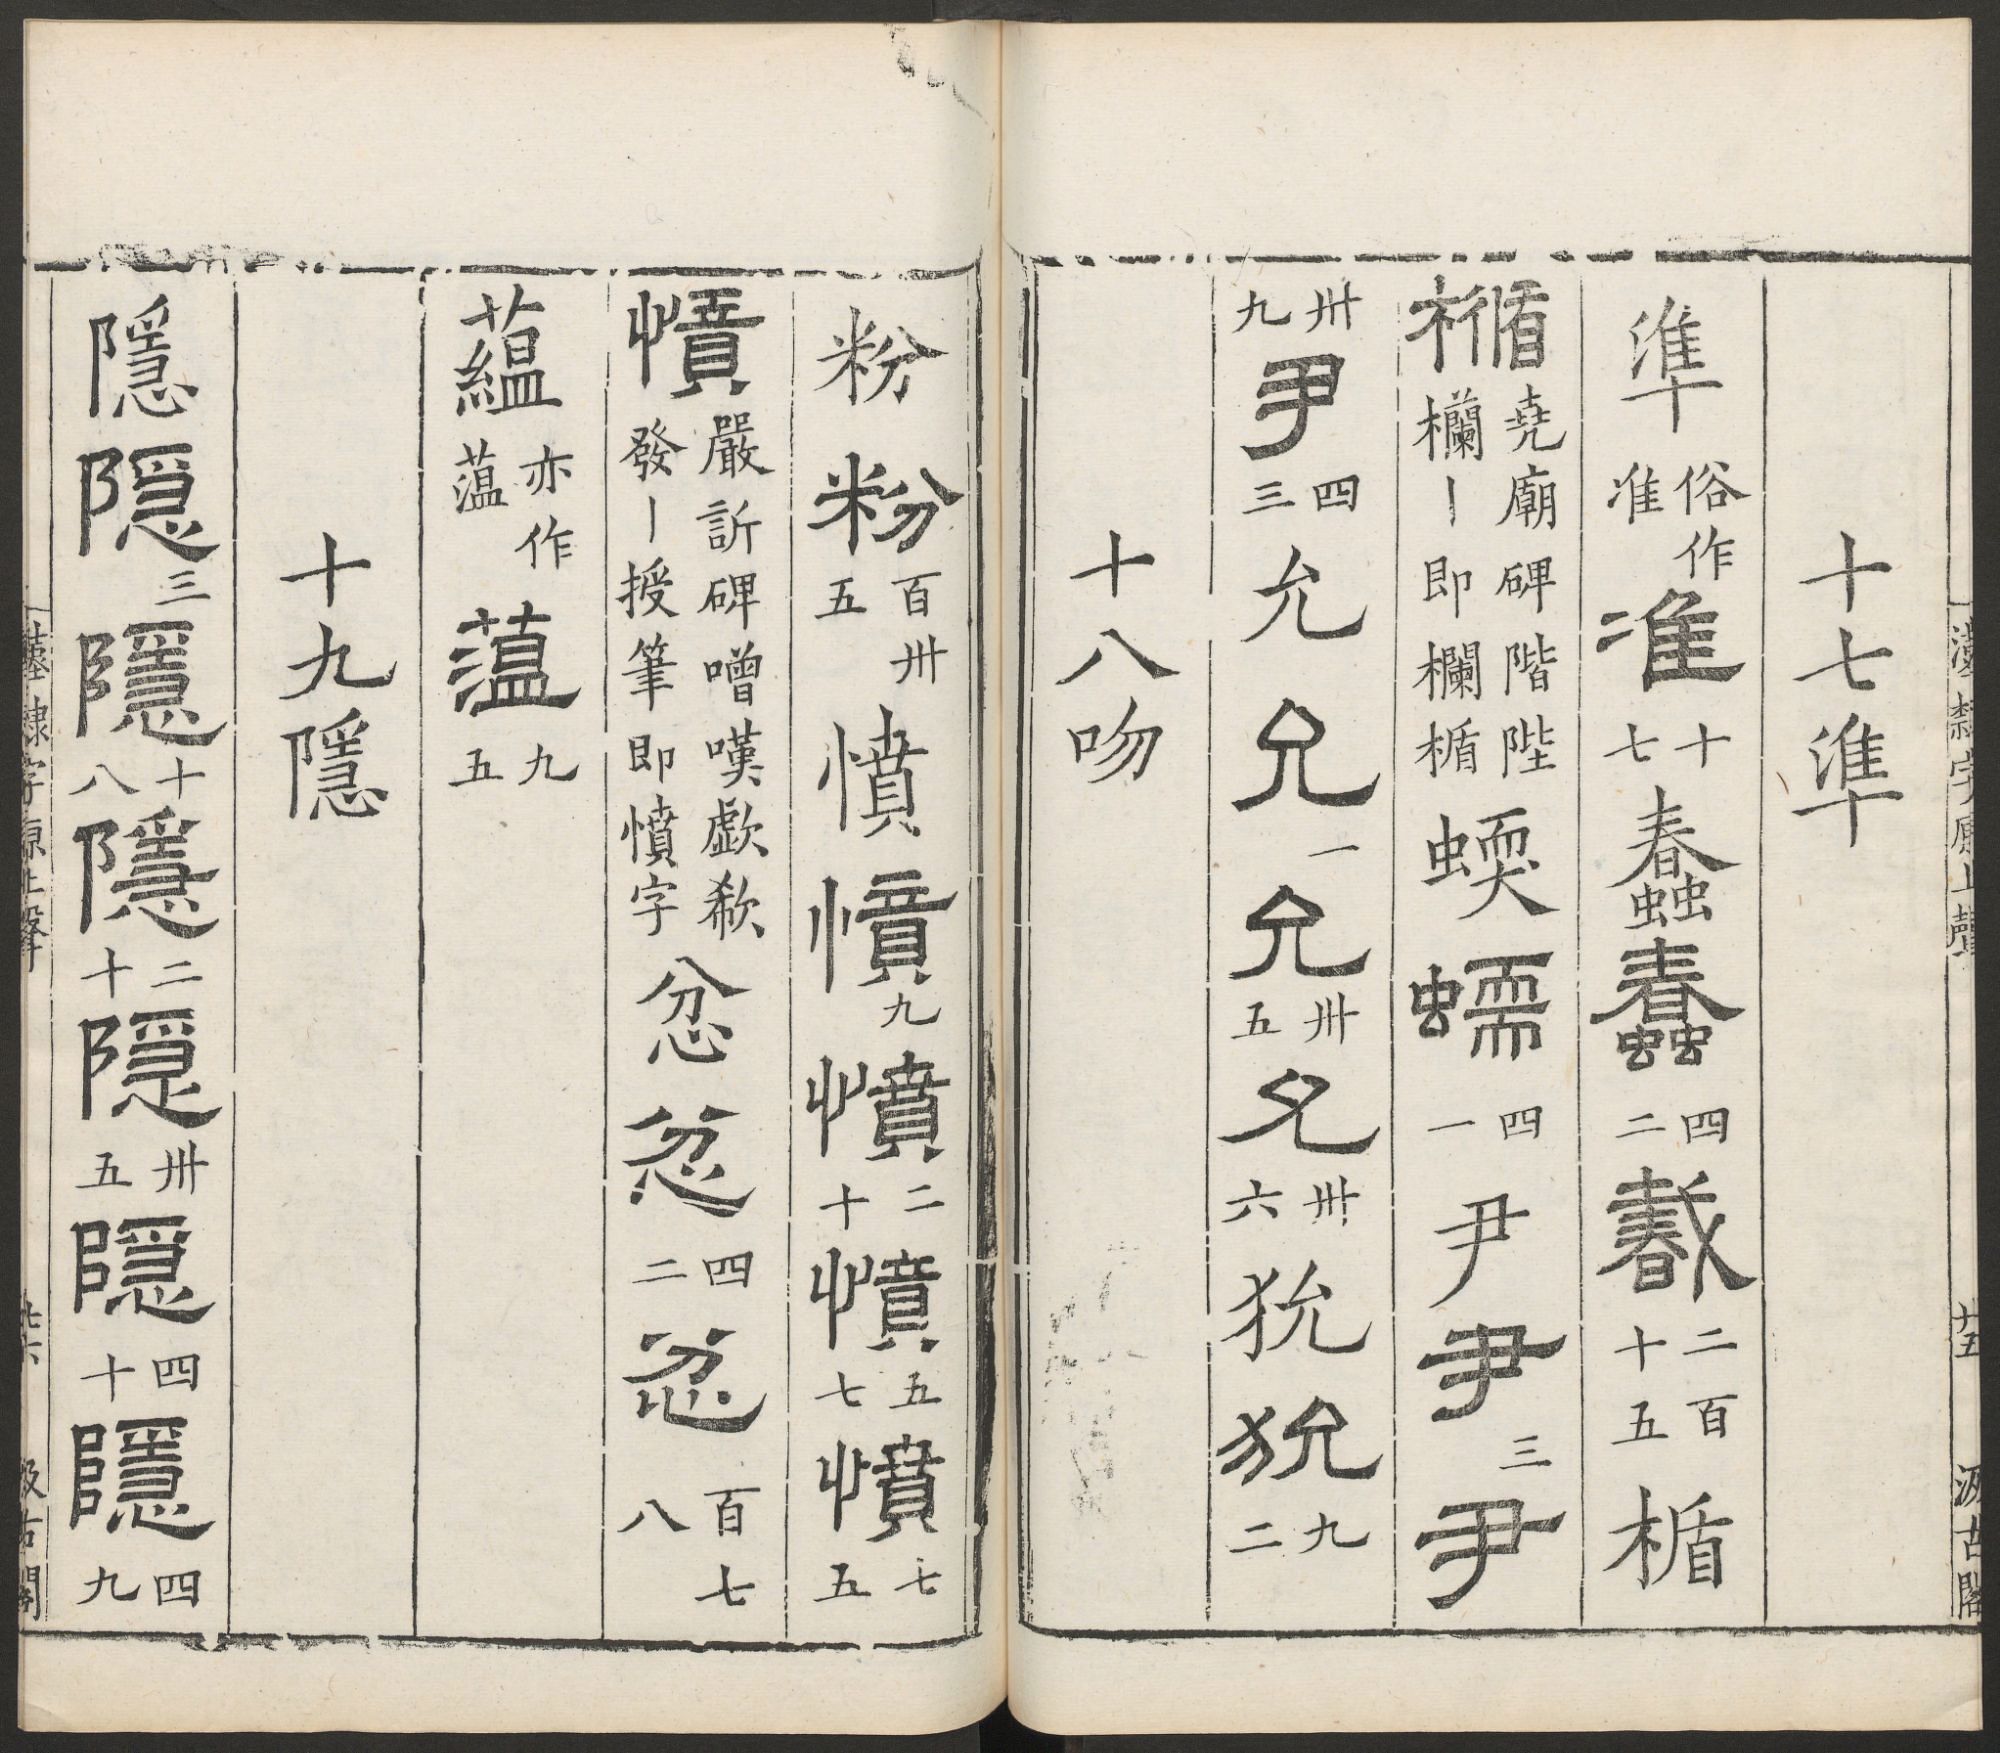 十七準
準俗作准准十七蠢蠢四二𢧨二百十五楯
楯堯廟碑階陛欄丨即欄楯蝡蠕四一尹尹三尹
卅九尹四三允允一允卅五允卅六狁狁九二
十八吻
漢隸字原上聲 廿五 汲古閣
粉粉百卅五憤憤九憤二十憤五七憤七五
憤嚴訢碑噌嘆歔欷發丨授筆即憤字忿忿四二忿百七八
蘊亦作薀薀九五
十九隱
隱隱三隱十八隱二十隱卅五隱四十隱四九
漢隸字原上聲 廿六 汲古閣